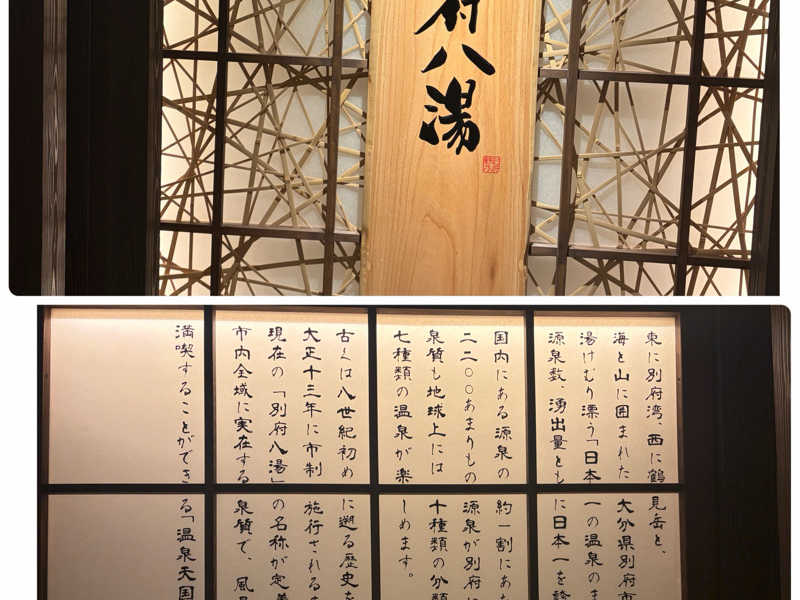 府八湯
東に別府湾、西に鶴見岳と、
海と山に囲まれた大分県別府市
湯けむり漂う「日本一の温泉のま
源泉数、湧出量ともに日本一を誇
国内にある源泉の約一割にあた
二二〇〇あまりもの源泉が別府に
泉質も地球上には十種類の分類
七種類の温泉が楽しめます。
古くは八世紀初めに遡る歴史を
大正十三年に市制施行される
現在の「別府八湯」の名称が定着
市内全域に実在する泉質で、風
満喫することができる「温泉天国